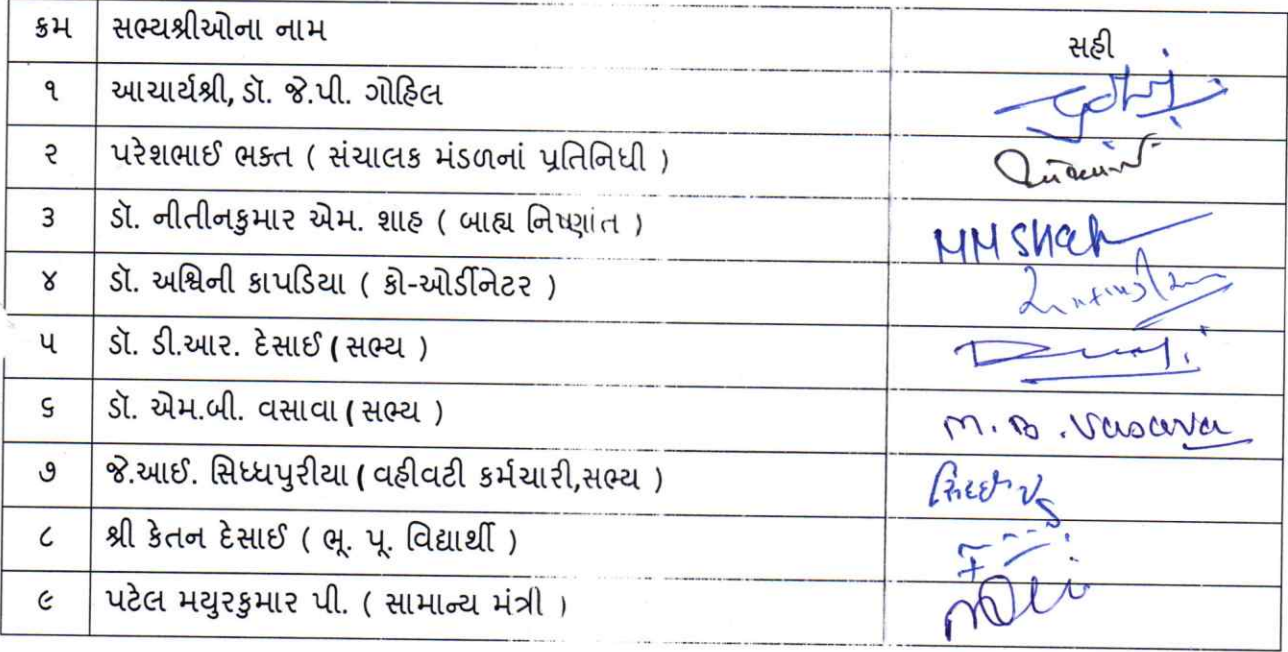 ક્રમ સભ્યશ્રીઓના નામ સહી
૧ આચાર્યશ્રી, ડૉ. જે.પી. ગોહિલ
૨ પરેશભાઈ ભક્ત ( સંચાલક મંડળનાં પ્રતિનિધી )
૩ ડૉ. નીતીનકુમાર એમ. શાહ ( બાહ્ય નિષ્ણાંત ) MM Shah
૪ ડૉ. અશ્વિની કાપડિયા ( કો-ઓર્ડીનેટર )
૫ ડૉ. ડી.આર. દેસાઈ ( સભ્ય )
૬ ડૉ. એમ.બી. વસાવા ( સભ્ય ) M. B. Vasava
૭ જે.આઈ. સિધ્ધપુરીયા ( વહીવટી કર્મચારી,સભ્ય )
૮ શ્રી કેતન દેસાઈ ( ભૂ. પૂ. વિદ્યાર્થી )
૯ પટેલ મયુરકુમાર પી. ( સામાન્ય મંત્રી )